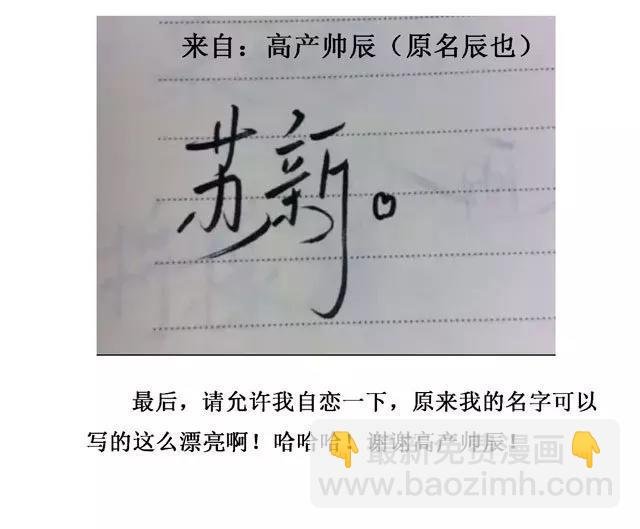 来自：高产帅辰（原名辰也）
苏新。
最后，请允许我自恋一下，原来我的名字可以
写的这么漂亮啊！哈哈哈！谢谢高产帅辰！
最新免费漫画
www.baozimh.com